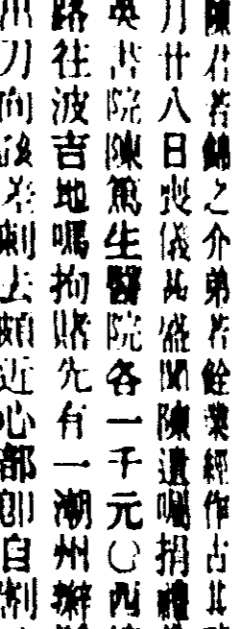 陳君若錦之介弟若銓業經作古其
月廿八日喪儀甚盛聞陳遺囑捐禮
英書院陳篤生醫院各一千元〇西
路往波吉地囑拘賭先有一潮州辦
刀向後差刺去頗近心部卽自割